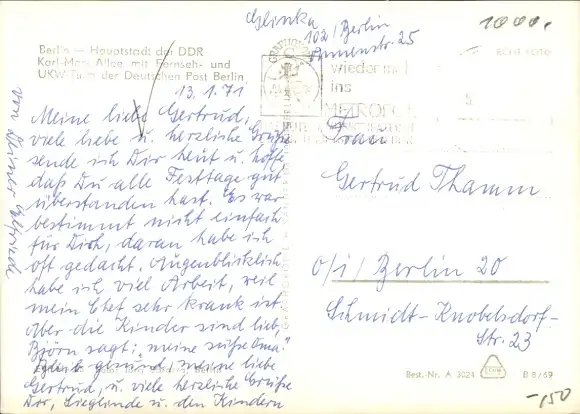 Glinka
102/Berlin
Annenstr. 25
1000.
Berlin — Hauptstadt der DDR
Karl-Marx-Allee mit Fernseh- und
UKW-Turm der Deutschen Post Berlin
ECHT FOTO
wieder mal
ins
METROPOL
13.1.71
Meine liebe Gertrud,
viele liebe u. herzliche Grüße
sende ich Dir heut u. hoffe,
daß Du alle Festtage gut
überstanden hast. Es war
bestimmt nicht einfach
für Dich, daran habe ich
oft gedacht. Augenblicklich
habe ich viel Arbeit, weil
mein Chef sehr krank ist
Aber die Kinder sind lieb,
Björn sagt: „meine süße Oma."
Bleib gesund, meine liebe
Gertrud, u. viele herzliche Grüße
Dir, Sieglinde u. den Kindern
von Deiner Elfriede
Frau
Gertrud Thamm
o/i/Berlin 20
Schmidt-Knobelsdorf-
Str. 23
Best.-Nr. A 3024
B 8/69
-,50